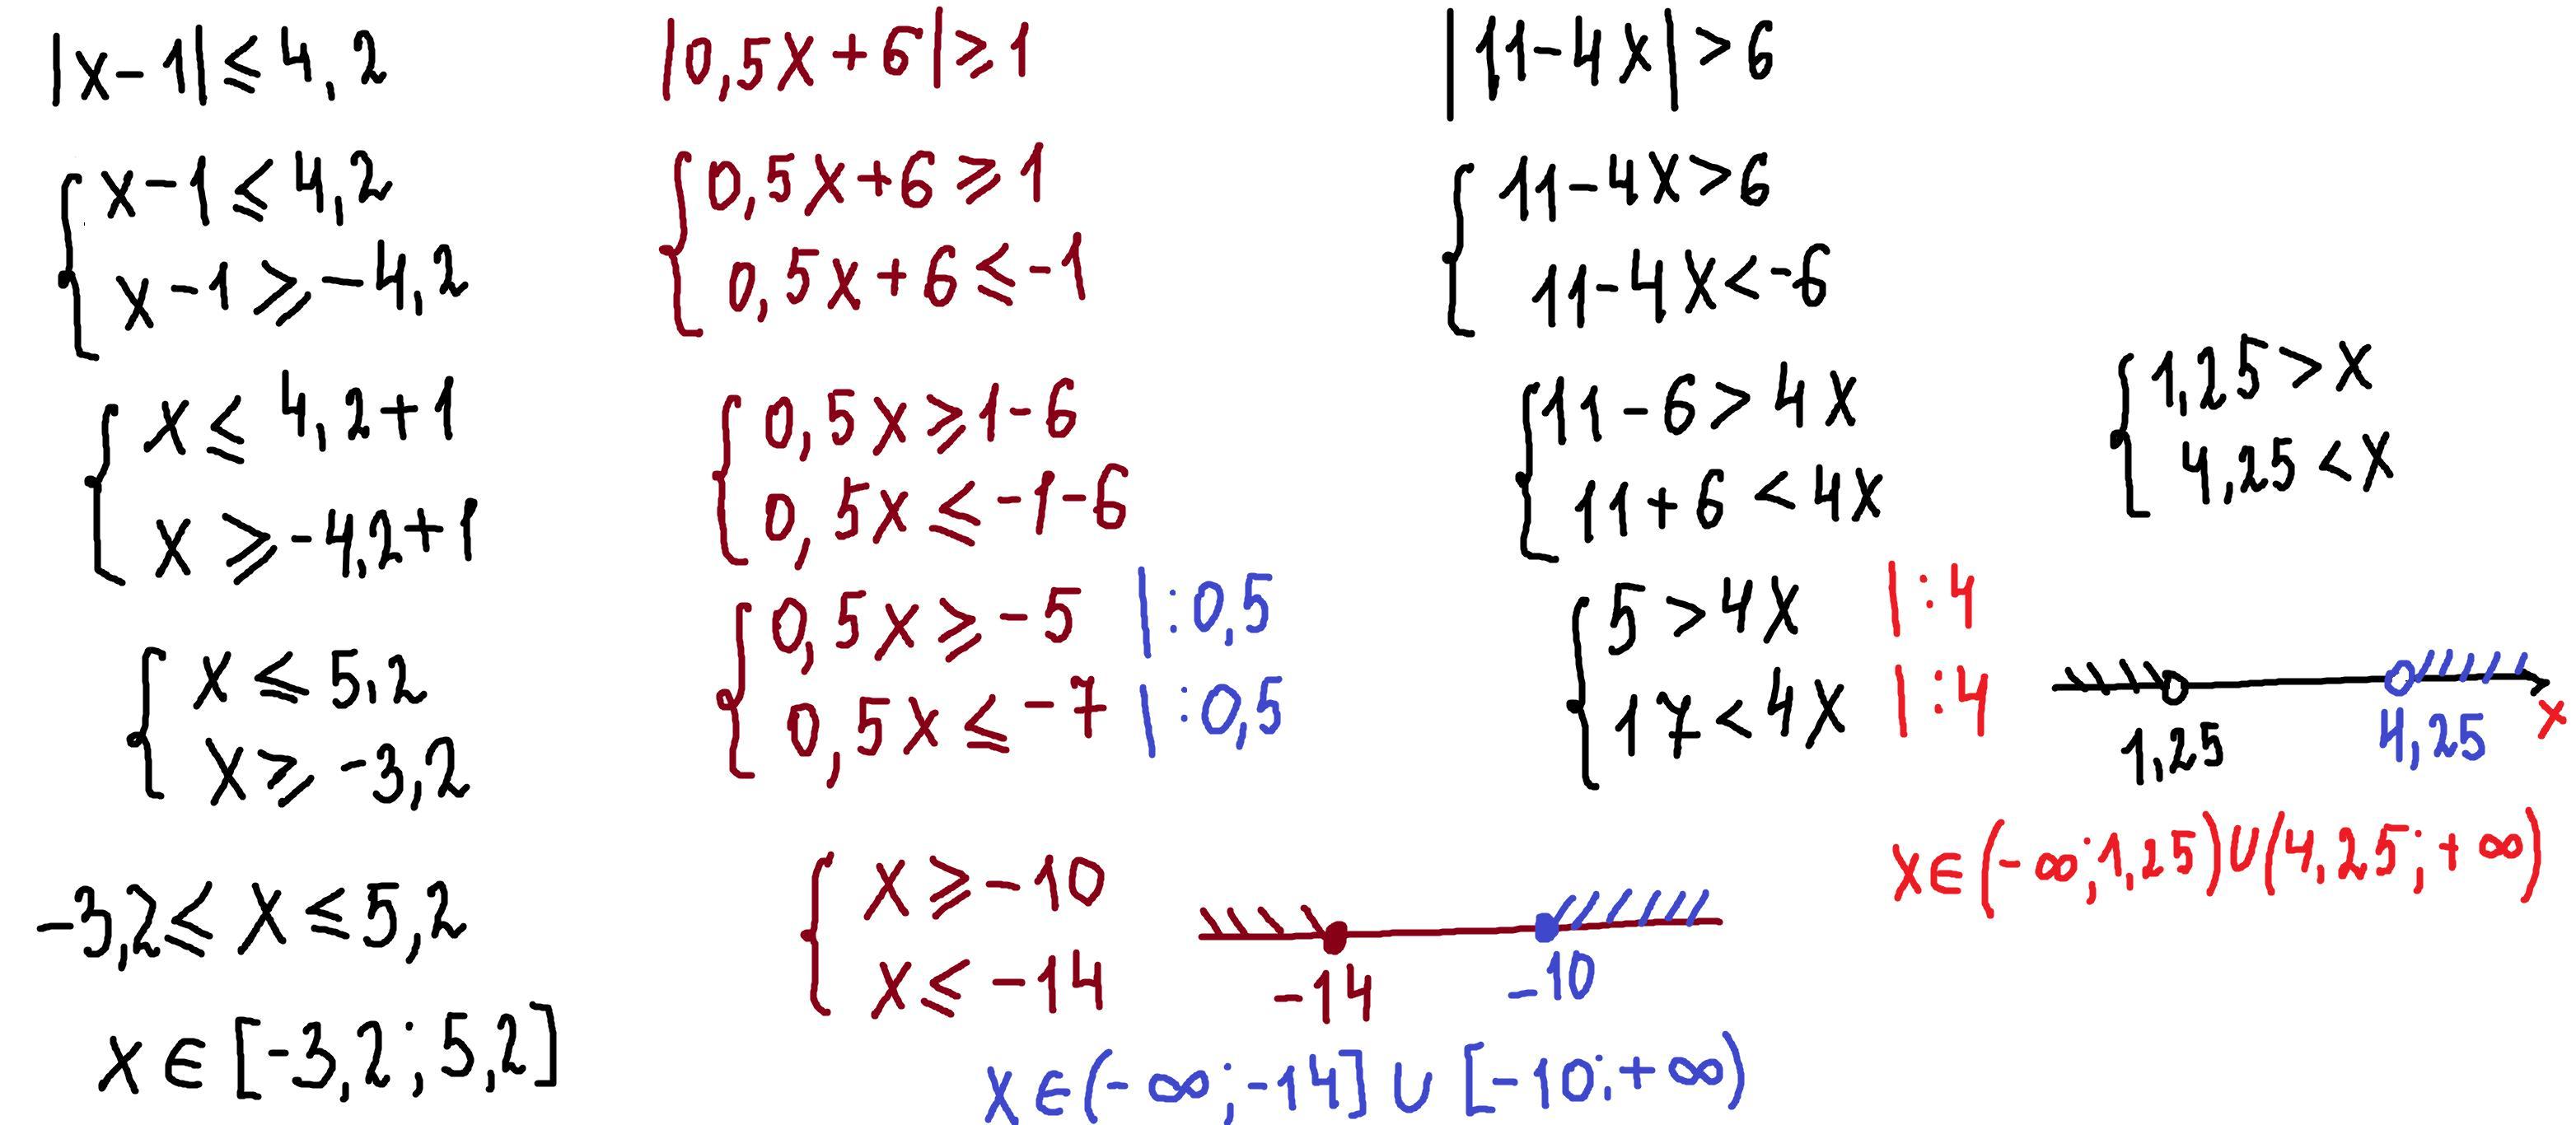 |x-1| ≤ 4,2
{ x-1 ≤ 4,2
x-1 ⩾ -4,2
{ x ≤ 4,2+1
x ⩾ -4,2+1
{ x ≤ 5,2
x ⩾ -3,2
-3,2 ≤ x ≤ 5,2
x ∈ [-3,2; 5,2]
|0,5x+6| ⩾ 1
{ 0,5x+6 ⩾ 1
0,5x+6 ≤ -1
{ 0,5x ⩾ 1-6
0,5x ≤ -1-6
{ 0,5x ⩾ -5 |:0,5
0,5x ≤ -7 |:0,5
{ x ⩾ -10
x ≤ -14
-14 -10
x ∈ (-∞; -14] ∪ [-10; +∞)
|11-4x| > 6
{ 11-4x > 6
11-4x < -6
{ 11-6 > 4x
11+6 < 4x
{ 5 > 4x |:4
17 < 4x |:4
{ 1,25 > x
4,25 < x
1,25 4,25 x
x ∈ (-∞; 1,25) ∪ (4,25; +∞)